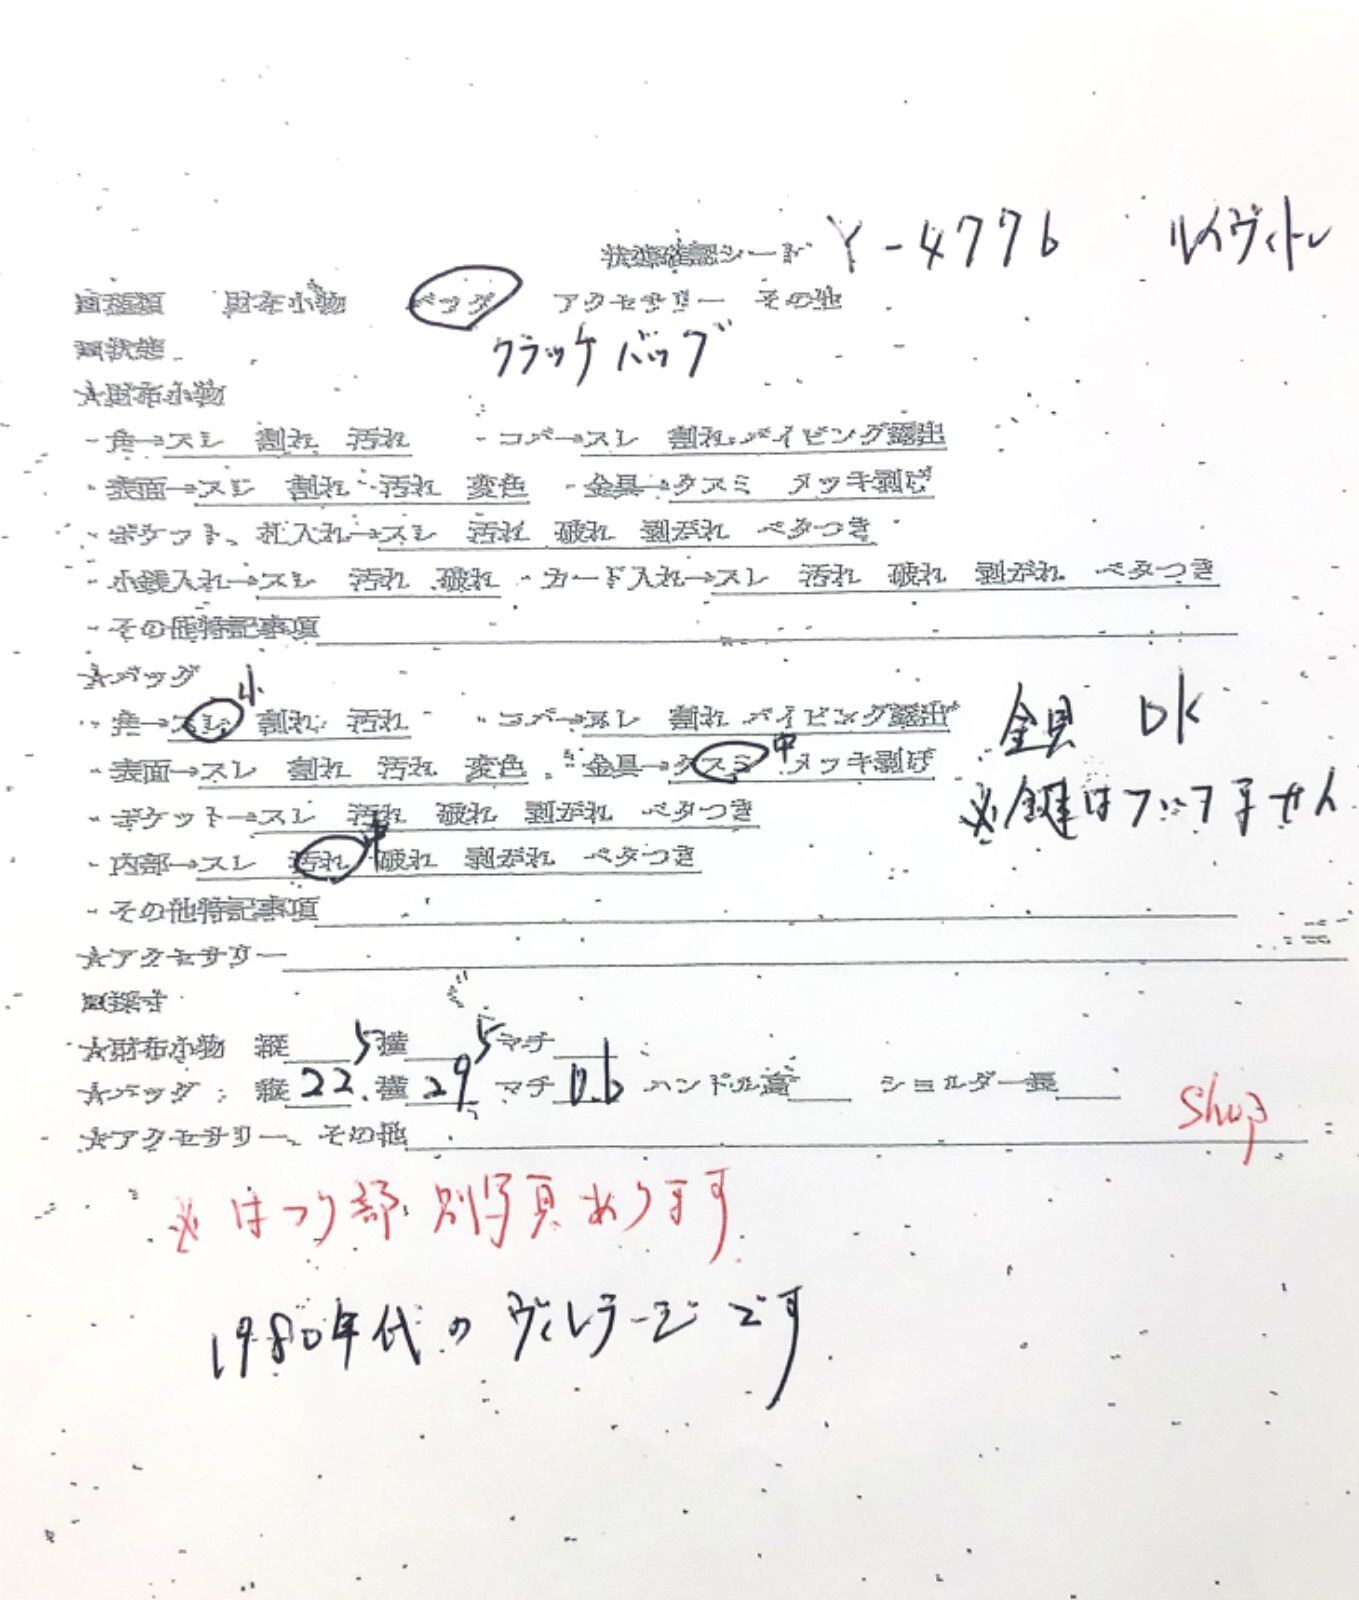 状態確認シート Y-4776 ルイヴィトン
■種類 財布小物 バッグ アクセサリー その他
■状態 クラッケバッグ
★財布小物
・角→スレ 割れ 汚れ ・コバ→スレ 割れ パイピング露出
・表面→スレ 割れ 汚れ 変色 ・金具→クスミ メッキ剥げ
・ポケット、札入れ→スレ 汚れ 破れ 剥がれ ベタつき
・小銭入れ→スレ 汚れ 破れ ・カード入れ→スレ 汚れ 破れ 剥がれ ベタつき
・その他特記事項
★バッグ
・角→スレ小 割れ 汚れ ・コバ→スレ 割れ パイピング露出 金具 OK
・表面→スレ 割れ 汚れ 変色 ・金具→クスミ中 メッキ剥げ
・ポケット→スレ 汚れ 破れ 剥がれ ベタつき ※鍵はついてません
・内部→スレ 汚れ中 破れ 剥がれ ベタつき
・その他特記事項
★アクセサリー
■採寸
★財布小物 縦 横 マチ
★バッグ 縦22.5 横29.5 マチ0.6 ハンドル高 ショルダー長
★アクセサリー、その他 Shop
※はつり部 別写真あります
1980年代のヴィンテージです